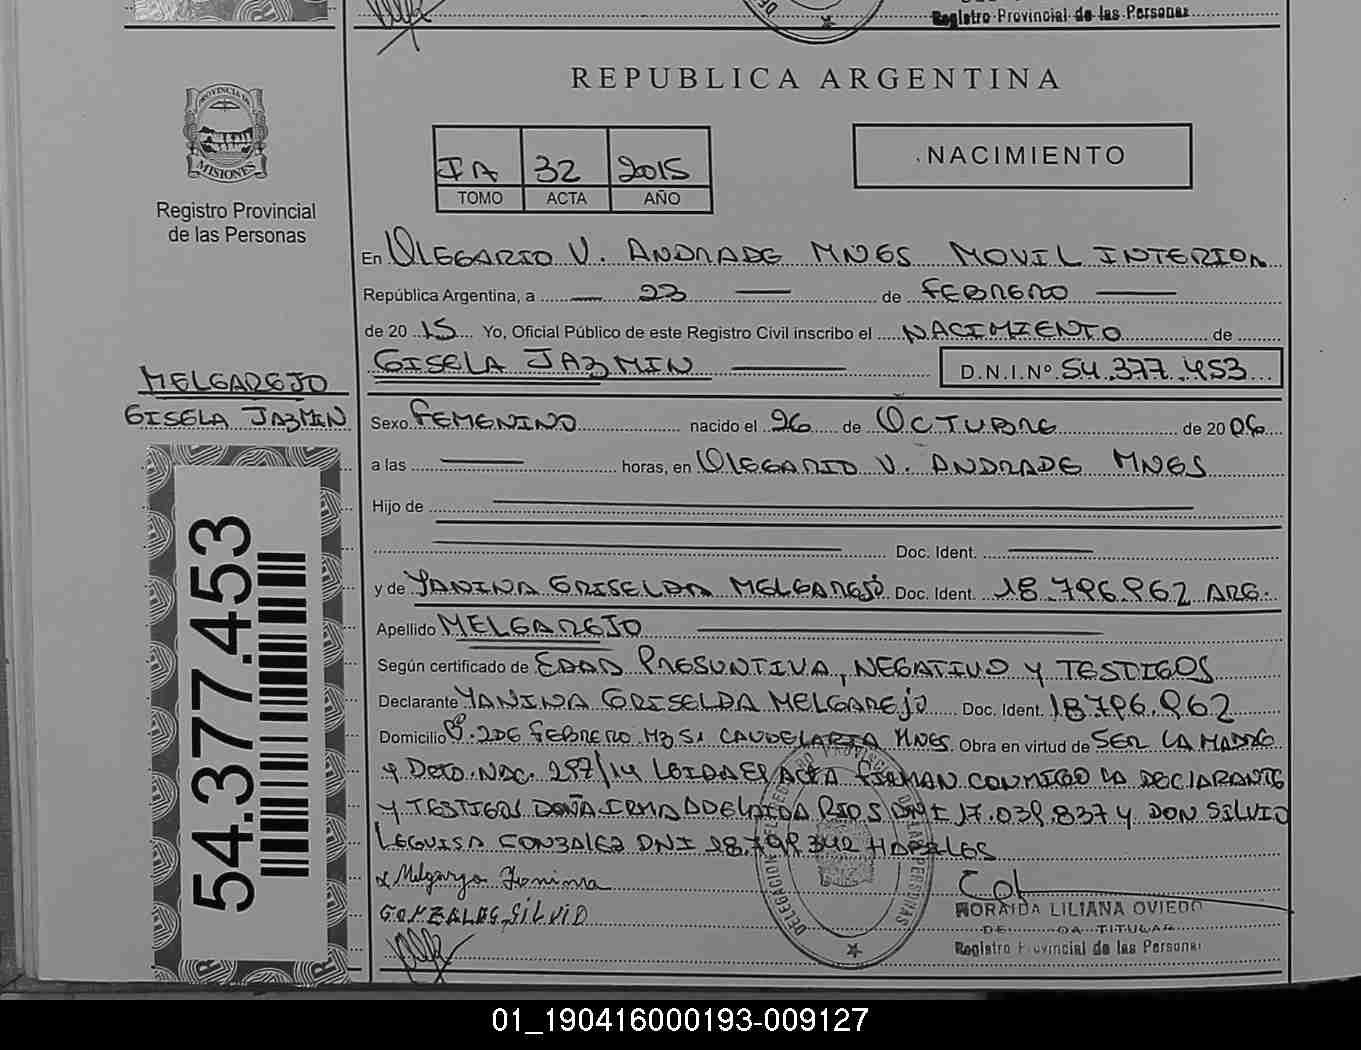 Registro Provincial de las Personas
REPUBLICA ARGENTINA
IA 32 2015
TOMO ACTA AÑO
NACIMIENTO
MISIONES
Registro Provincial
de las Personas
En OLEGARIO V. ANDRADE MNES MOVIL INTERIOR
República Argentina, a 23 de FEBRERO
de 20 15 Yo, Oficial Público de este Registro Civil inscribo el NACIMIENTO de
GISELA JAZMIN D.N.I.Nº 54.377.453
MELGAREJO
GISELA JAZMIN
Sexo FEMENINO nacido el 26 de OCTUBRE de 20 06
a las horas, en OLEGARIO V. ANDRADE MNES
Hijo de
Doc. Ident.
y de YANINA GRISELDA MELGAREJO Doc. Ident. 18.796.962 ARG.
Apellido MELGAREJO
Según certificado de EDAD PRESUNTIVA, NEGATIVO Y TESTIGOS
Declarante YANINA GRISELDA MELGAREJO Doc. Ident. 18.796.962
Domicilio Bº. 2 DE FEBRERO MZ S. CANDELARIA MNES. Obra en virtud de SER LA MADRE
Y Dcto. NAC. 297/14 LEIDA EL ACTA FIRMAN CONMIGO LA DECLARANTE
Y TESTIGOS DOÑA IRMA ADELAIDA RIOS DNI 17.039.837 Y DON SILVIO
LEGUISA GONZALEZ DNI 18.798.342 HABILES
x Melgarejo Yanina
GONZALES, SILVIO
NORAIDA LILIANA OVIEDO
TITULAR
Registro Provincial de las Personas
54.377.453
01_190416000193-009127